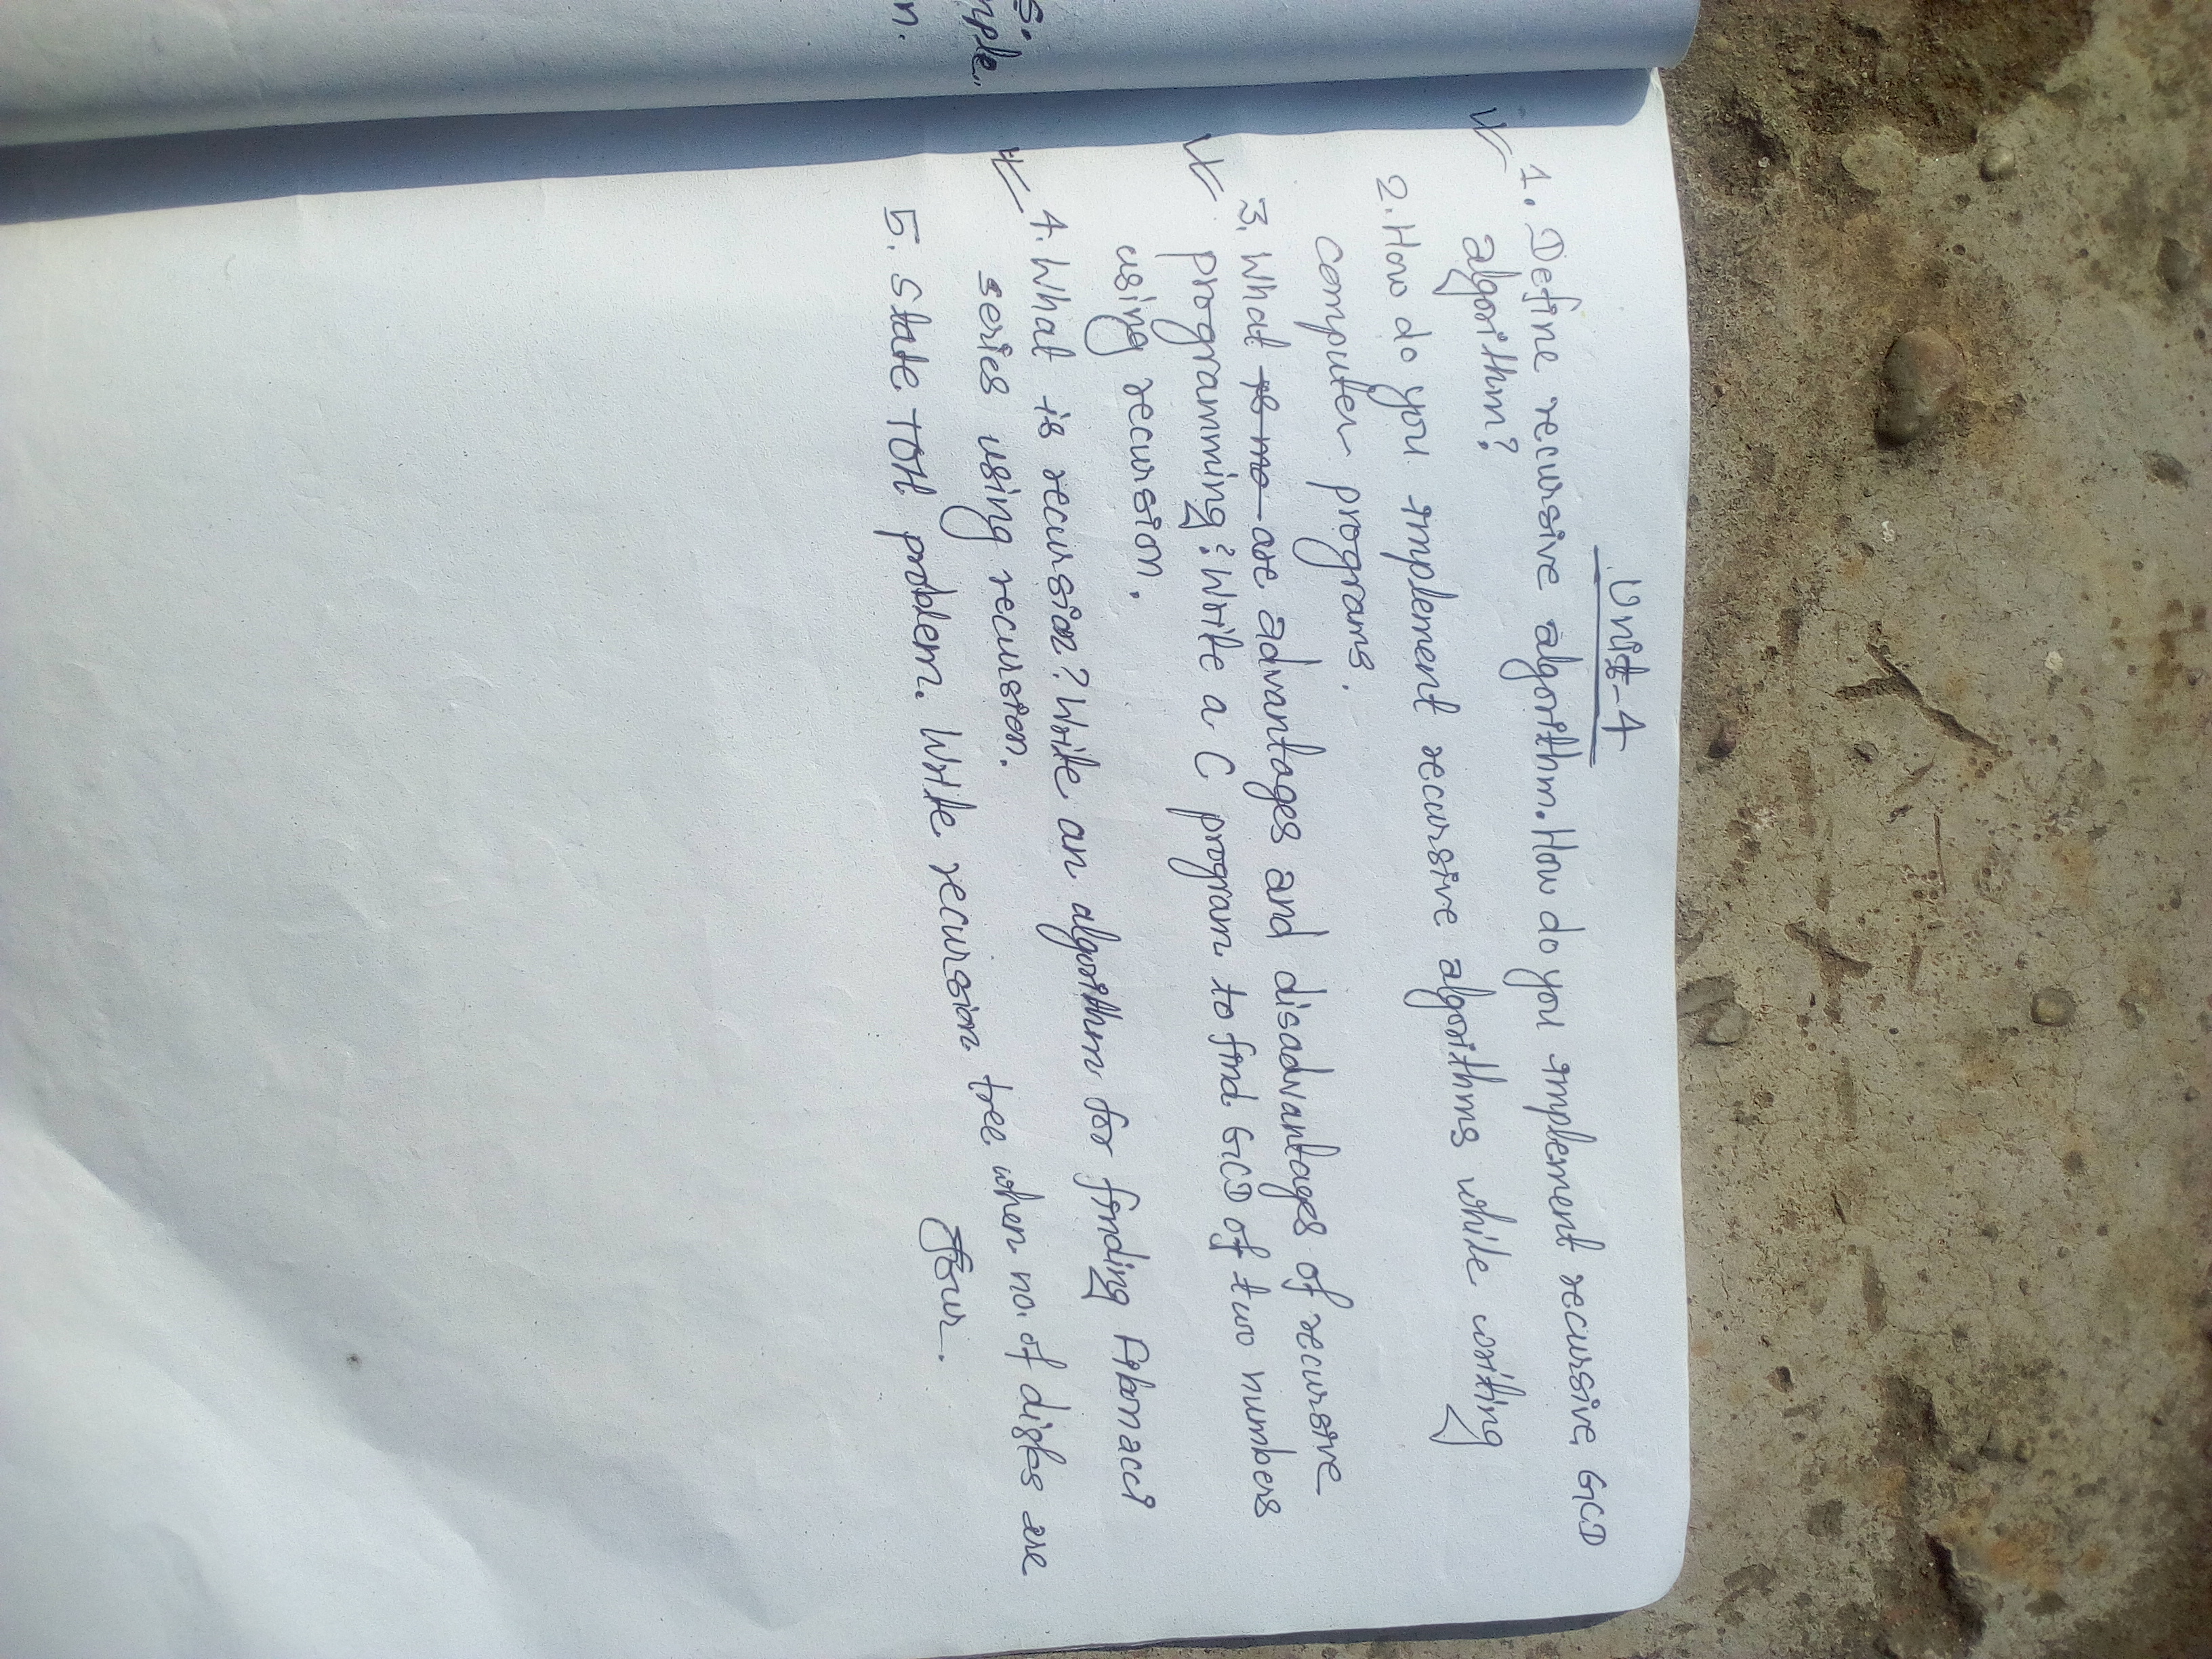 Unit-4
1. Define recursive algorithm. How do you implement recursive GCD
algorithm?
2. How do you implement recursive algorithms while writing
computer programs.
3. What is mo are advantages and disadvantages of recursive
programming? Write a C program to find GCD of two numbers
using recursion.
4. What is recursion? Write an algorithm for finding Fibonacci
series using recursion.
5. State TOH problem. Write recursion tree when no. of disks are
four.
s.
mple.
n.